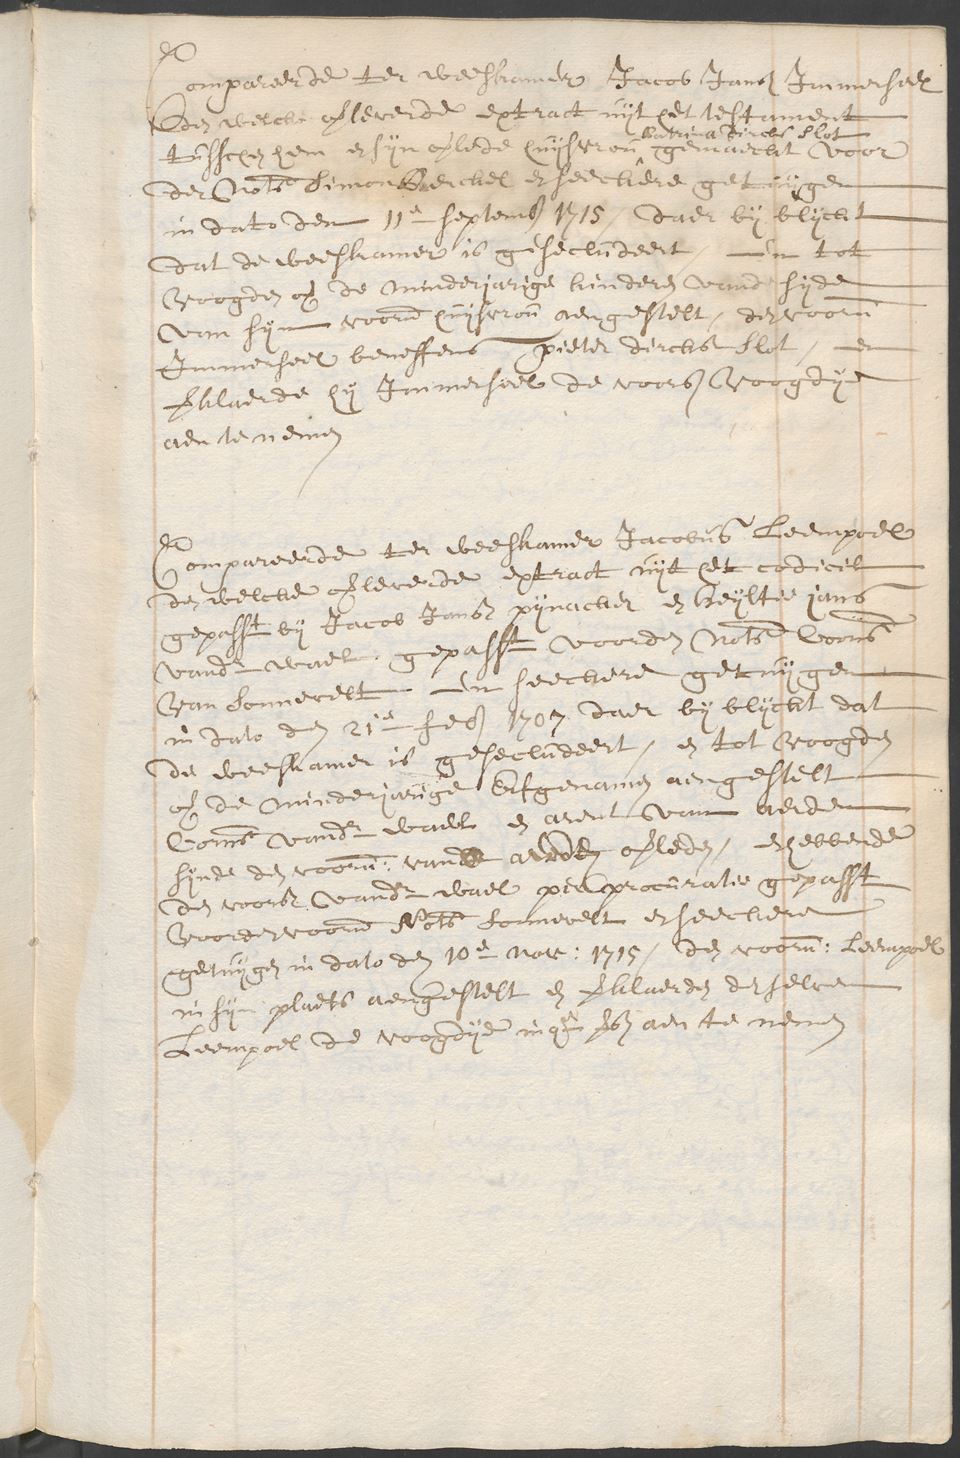 Compareerde ter weeskamer Jacob Jansz Immerseel
de welcke overleverde extract uijt het testament
tusschen hem en sijn overlede huijsvrou ^ Catrina Dircks Slot gemaeckt voor
den Nots Simon Berckel en seeckere getuijgen
in dato den 11en septemb 1715 / daer bij blijckt
dat de weeskamer is geseclúdeert / en tot
Voogden over de minderjarige kinderen vande sijde
van sijn voorn huijsvrou aengestelt / de voorn
Immerseel beneffens pieter dircks Slot / en
verklaerde hij Immerseel de voors Voogdije
aen te nemen

Compareerde ter weeskamer Jacobús Leempoel
de welcke overleverde extract uijt het codicil
gepasst bij Jacob Jansz pijnacker en Neyltie jans
vandr wael, gepasst voor den Nots Corns
van Sonnevelt en seeckere getuijgen
in dato den 21en feb 1707 daer bij blijckt dat
de weeskamer is geseclúdeert / en tot Voogden
over de minderjarige Erfgenamen aengestelt
Corns vandr wael en arent van aerden
sijnde de voorn: van aerden overleden / en hebbende
de voors vandr wael per procúratie gepasst
voor de voorn Nots Sonnevelt en seeckere
getuijgen in dato den 10en Nov: 1715 / de voorn: Leempoel
in sijn plaets aengestelt en verklaerde deselve
Leempoel de voogdije in qte vs aen te nemen